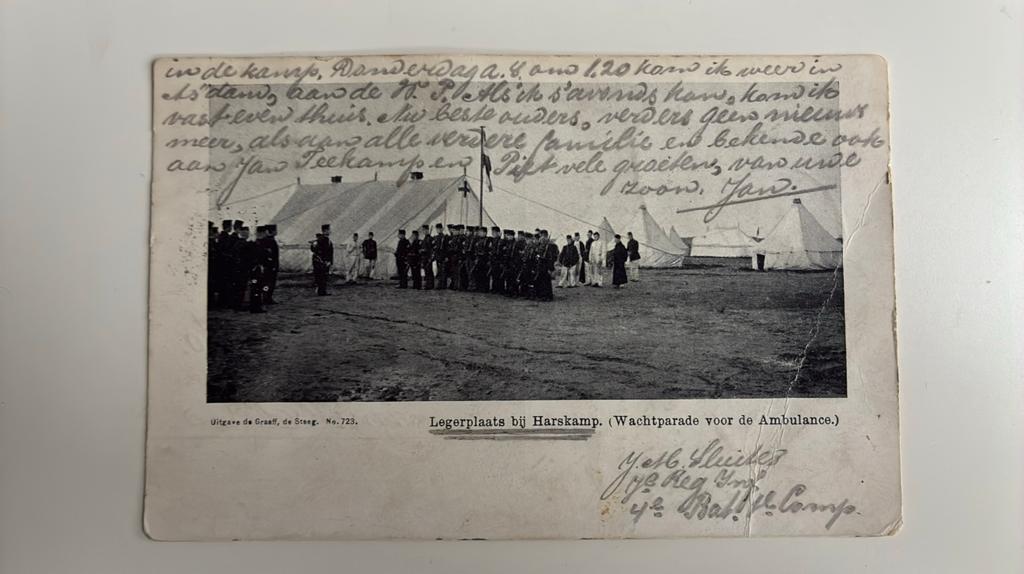 in de kamp. Donderdag a.s. om 1.20 kom ik weer in
A'dam, aan de W. P. Als ik s'avonds kan, kom ik
vast even thuis. Nu beste ouders, verders geen nieuws
meer, als aan alle verdere familie en bekende ook
aan Jan Teekamp en Piet vele groeten, van uwe
zoon. Jan.
Uitgave de Graaff, de Steeg. No. 723.
Legerplaats bij Harskamp. (Wachtparade voor de Ambulance.)
J. M. Sluiter
7e Reg Inf
4e Bat. 1e Comp.